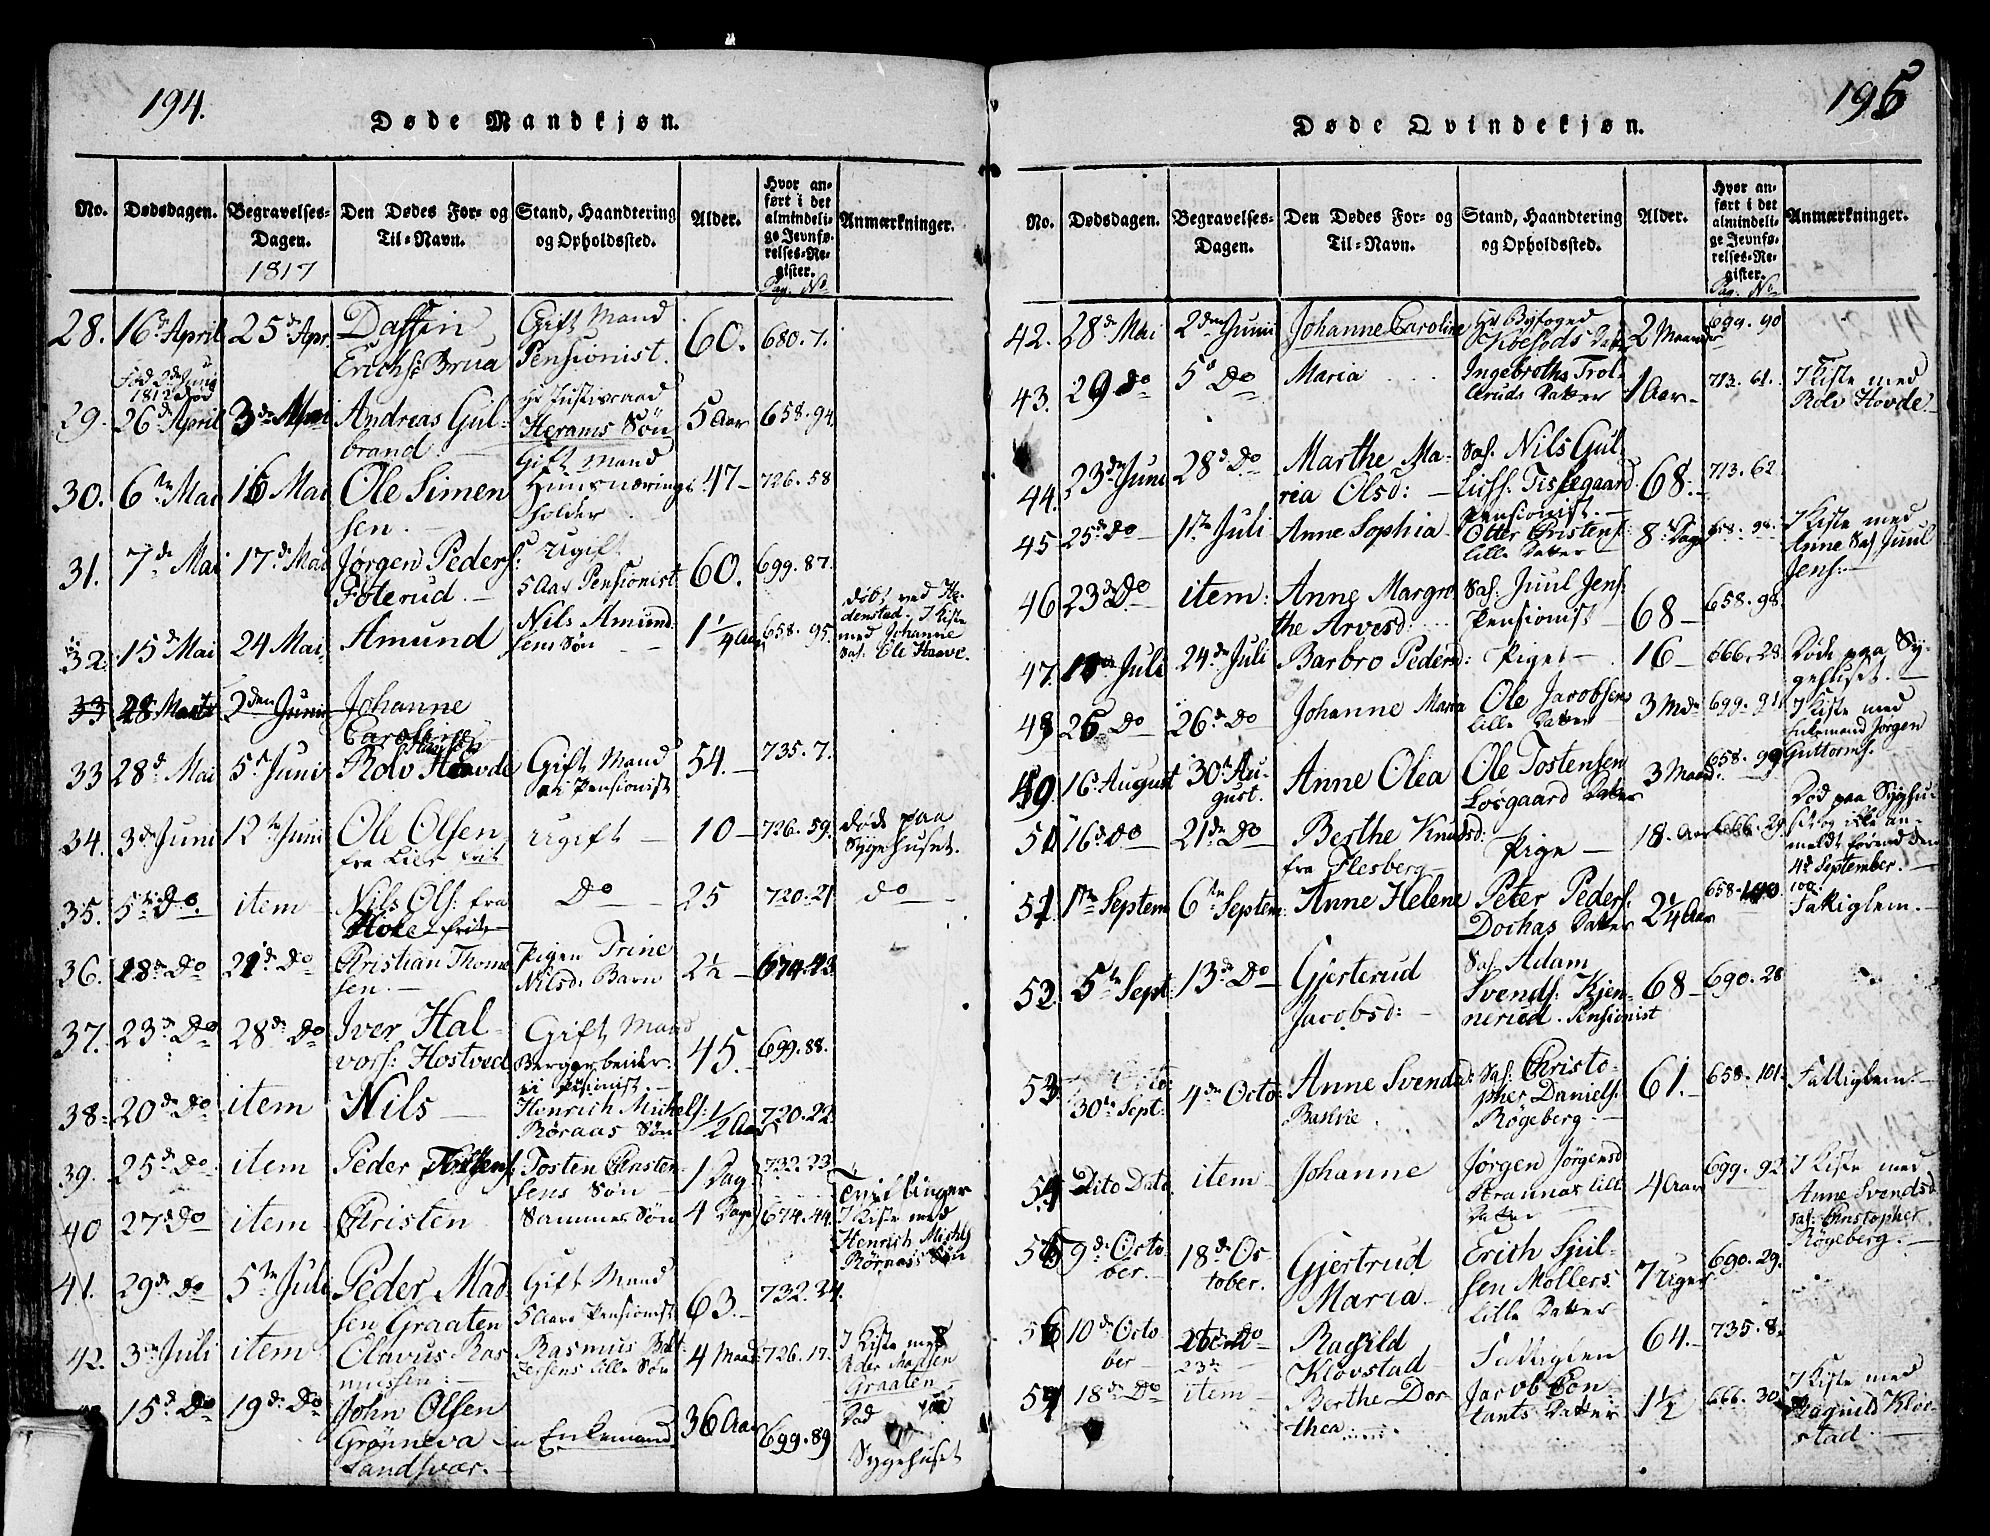 194.
Døde Mandkjøn.
No. Dødsdagen. Begravelses-Dagen. Den Dødes For- og Til-Navn. Stand, Haandtering og Opholdssted. Alder. Hvor anført i det almindelige Jevnførelses-Register. Anmærkninger.
1817
Pag. No
28. 16d April 25de Apr. Daffin Erichs: Brua Gift Mand Pensionist. 60. 680. 7.
Fød 3de Junij 1812 død
29. 26de April 3de Mai Andreas Gulbrand Hr Justisraad Herams Søn 5 Aar 658. 94.
30. 6te Mai 16 Mai Ole Simensen. Gift Mand holder 47 726. 58
31. 7de Mai 17de Mai Jørgen Peders: Foterud. Ugift 5 Aar Pensionist 60. 699. 87.
32. 15de Mai 24 Mai Amund Nils Amundsens Søn 1 1/4 Aar 658. 95. døbt ved Hedenstad. I Kiste med Johanne Sal. Ole Haave.
33 28 2den Junii Johanne Caroline
33 28d Mai 5te Juni Rolv Hovde Gift Mand ei Pensionist 54. 735. 7.
34. 3de Juni 12te Juni Ole Olsen fra Lier Ugift 10 726. 59. døde paa Sygehuset.
35. 5te Do. item Nils Ols: fra Do 25 720. 21 do
36. 18de Do 21de Do Christian Thomesen. Pigen Trine Nilsd: Barn 2½ 674. 43
37. 23de Do 28de Do Iver Halvors: Hostved Gift Mand Bergarbeider ei Pensionist. 45. 699. 88.
38. 20de Do item Nils Henrich Michels: Røraas Søn 1/2 Aar 720. 22.
39. 25de Do. item Peder Tosten Christensens Søn 1 Dag 732. 23
40 27de Do item Christen Sammes Søn 4 Dage 674. 44. Tvillinger I Kiste med Henrich Michls Rørnass Søn
41. 29de Do 5te Juli Peder Madsen Graaten Gift Mand 5 Aars Pensionist 63. 732. 24.
42. 3de Juli item Olavus Rasmussen Rasmus lille Søn 4 Maad 726. 17. I Kiste med Madsen Graaten
15de Do 19de Do John Olsen Grønneva Sandsvær. Enkemand 36 Aar 699. 89 Død paa Sygehuset
195
Døde Qvindekjøn.
No. Dødsdagen. Begravelses-Dagen. Den Dødes For- og Til-Navn. Stand, Haandtering og Opholdssted. Alder. Hvor anført i det almindelige Jevnførelses-Register. Anmærkninger.
Pag. No
42. 28de Mai 2den Junii Johanne Caroline Hr Byfoged Datter 2 Maaneder 699. 90
43. 29 Do 5te Do Maria Ingebroths Trolleruds Datter 1 Aar 713. 61. I Kiste med Rolv Hovde
44. 23de Juni 28de Do Marthe Maria Olsd: Sal. Nils Gul Tislegaard Pensionist. 68. 713. 62.
45 25de do 1ste Juli Anne Sophia Otter Cristens: lille Datter 8 Dage 658. I Kiste med Anne Sal. Juul Jens:
46 23de Do item: Anne Margrethe Arvesd: Sal. Juul Jens: Pensionist 68 658. 98.
47. Juli 24de Juli Barbro Pedersd: Pige 16 666. 28. Døde paa Sygehuset.
48 26 Do 26de Do Johanne Maria Ole Jacobsens lille Datter 3 Mdr 699. 91 I Kiste med Enkemand Jørgen Guttorms:
49. 16 August 30te August. Anne Olea Ole Tostensen Losgaard Datter 3 Maand: 658. 99
50 16de Do 21de Do Berthe Knudsd: fra Flesberg Pige 18. Aar 666. 29 Død paa Sygehuset og ikke anmeldt førend den 4de September.
51. 1ste Septem 6te Septem: Anne Helene Peter Peders: Dochas Datter 2¼ Aar 658. 100 Fattiglem.
52. 5te Sept: 13de Do Gjerterud Jacobsd: Sal. Adam Svends: Kjennerud. Pensionist 68 690. 28
53. 30te Sept: 4de Octo: Anne Svendsd: Bakke Sal. Christopher Daniels: Røgeberg 61. 658. 101. Fattiglem.
54 Dito Dato item Johanne Jørgen Jørgensd lille Datter 4 Aar 699. 92 I Kiste med Anne Svendsd: Sal. Christopher Røgeberg.
55 9de October. 18de October. Gjertrud Maria Erich Sjulsen Mollers lille Datter 7 Uger 690. 29.
56 10de October 23de Ragnild Klovstad Fattiglem 64. 735. 8.
57 18de Do item Berthe Dorthea Jacob Datter 1½ 666. 30 I Kiste med Ragnild Klovstad.